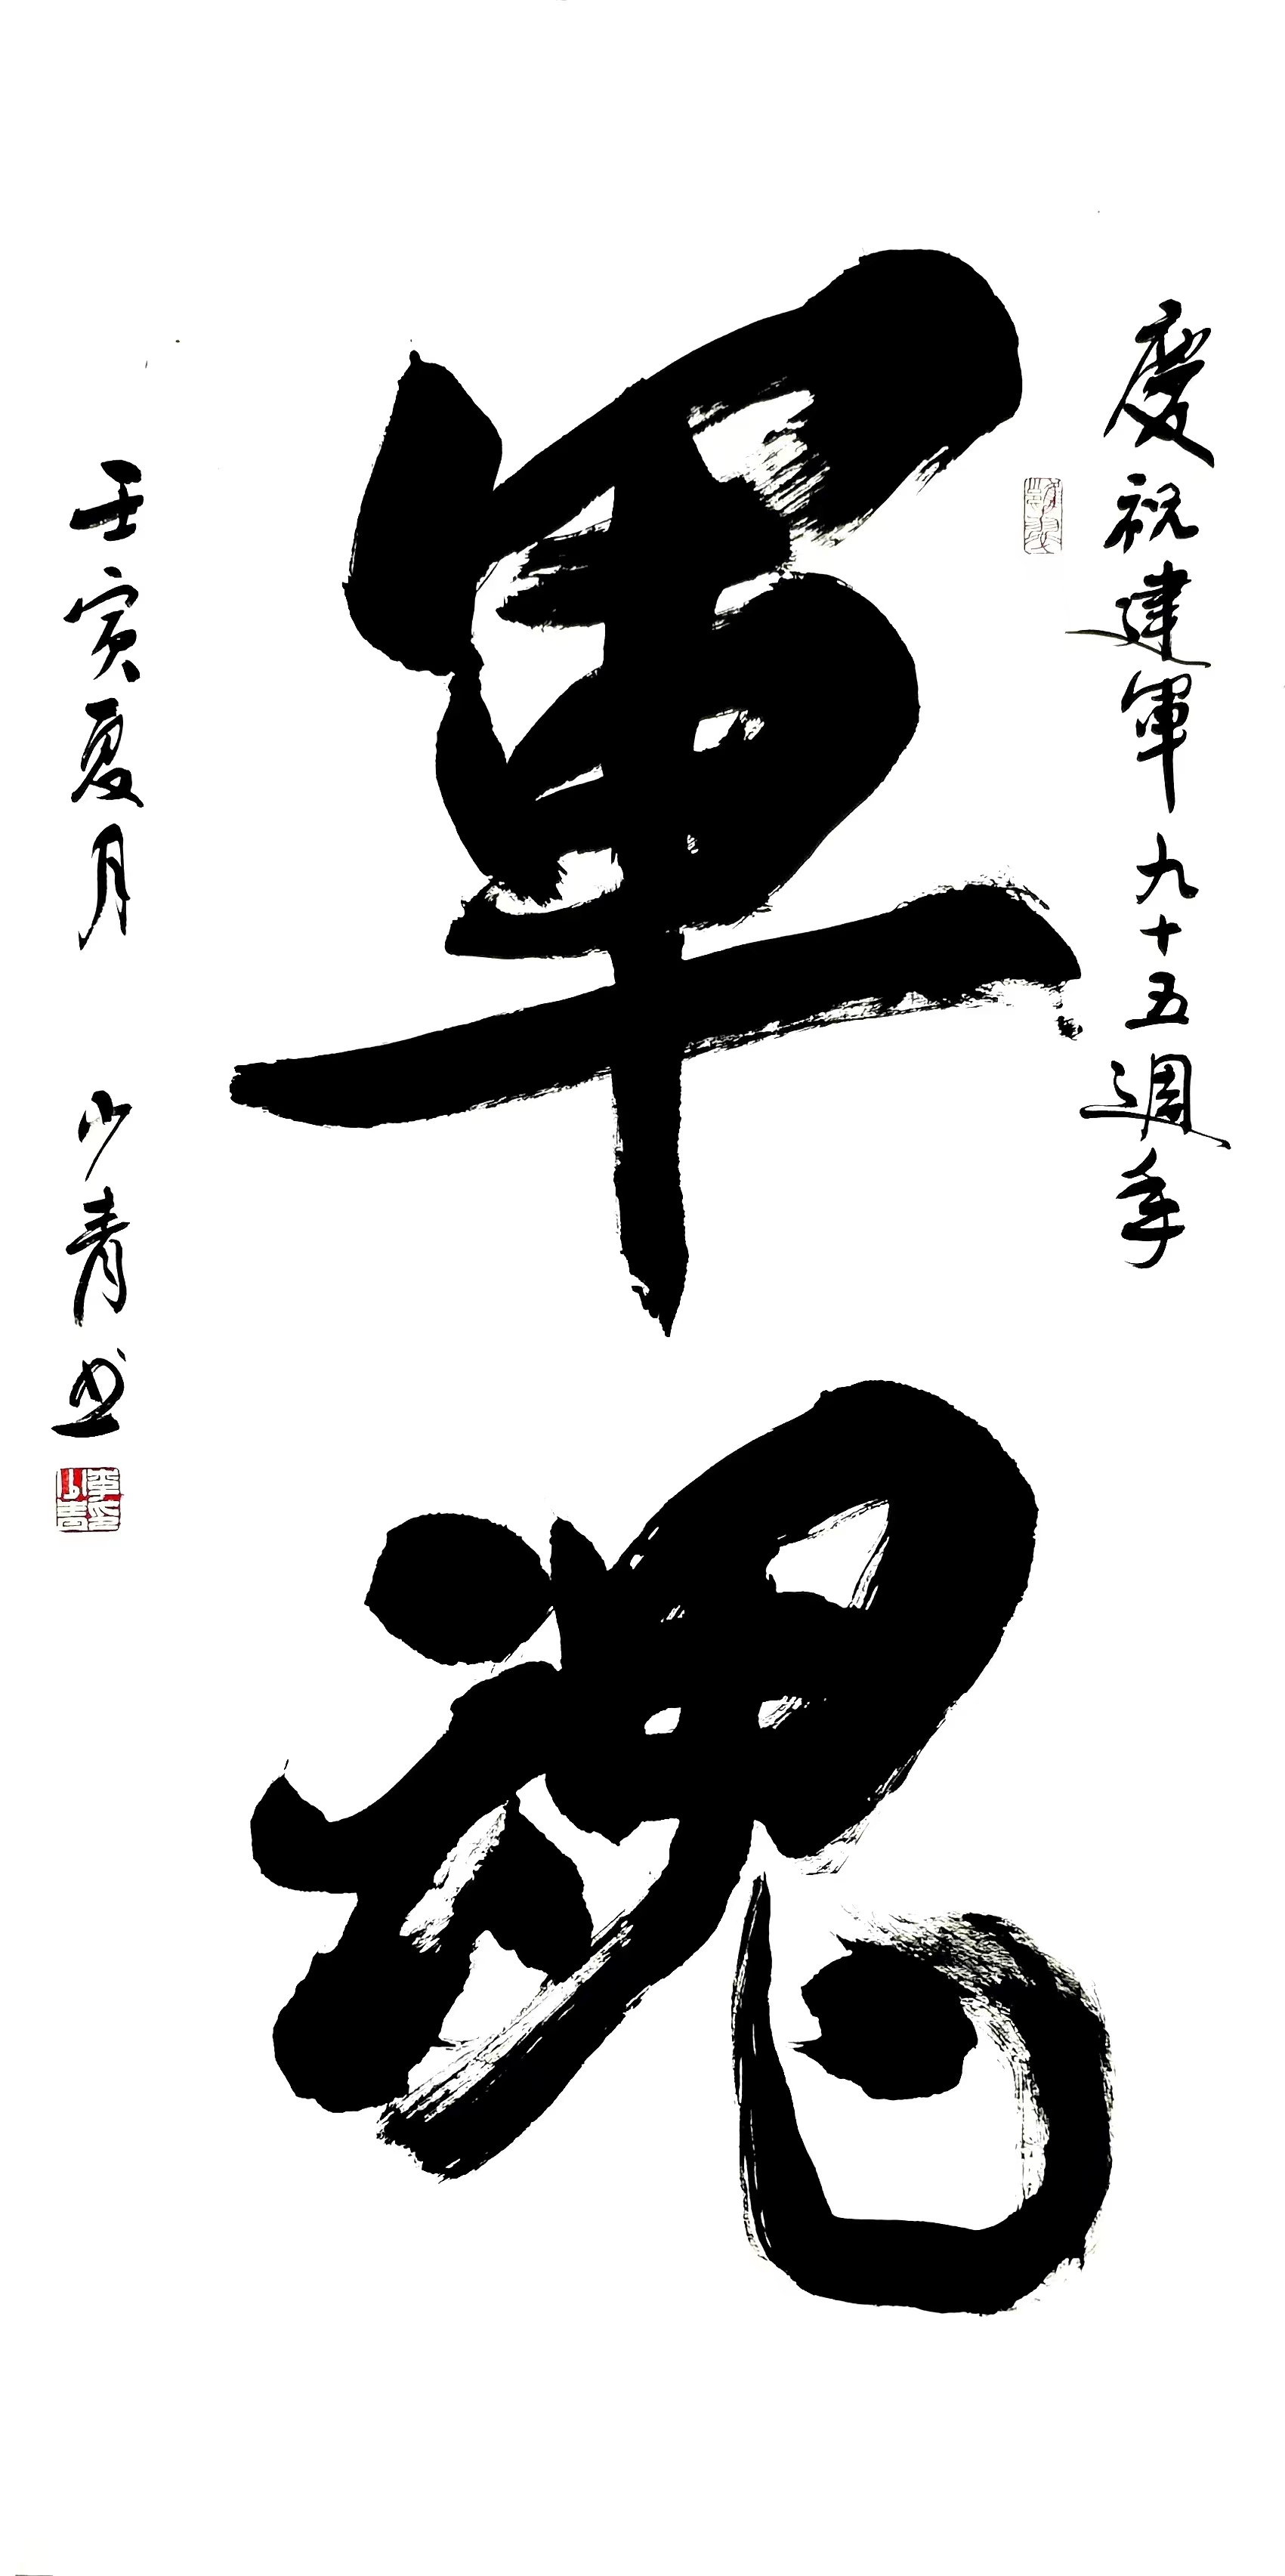 慶祝建軍九十五週年
軍魂
壬寅夏月 少青书